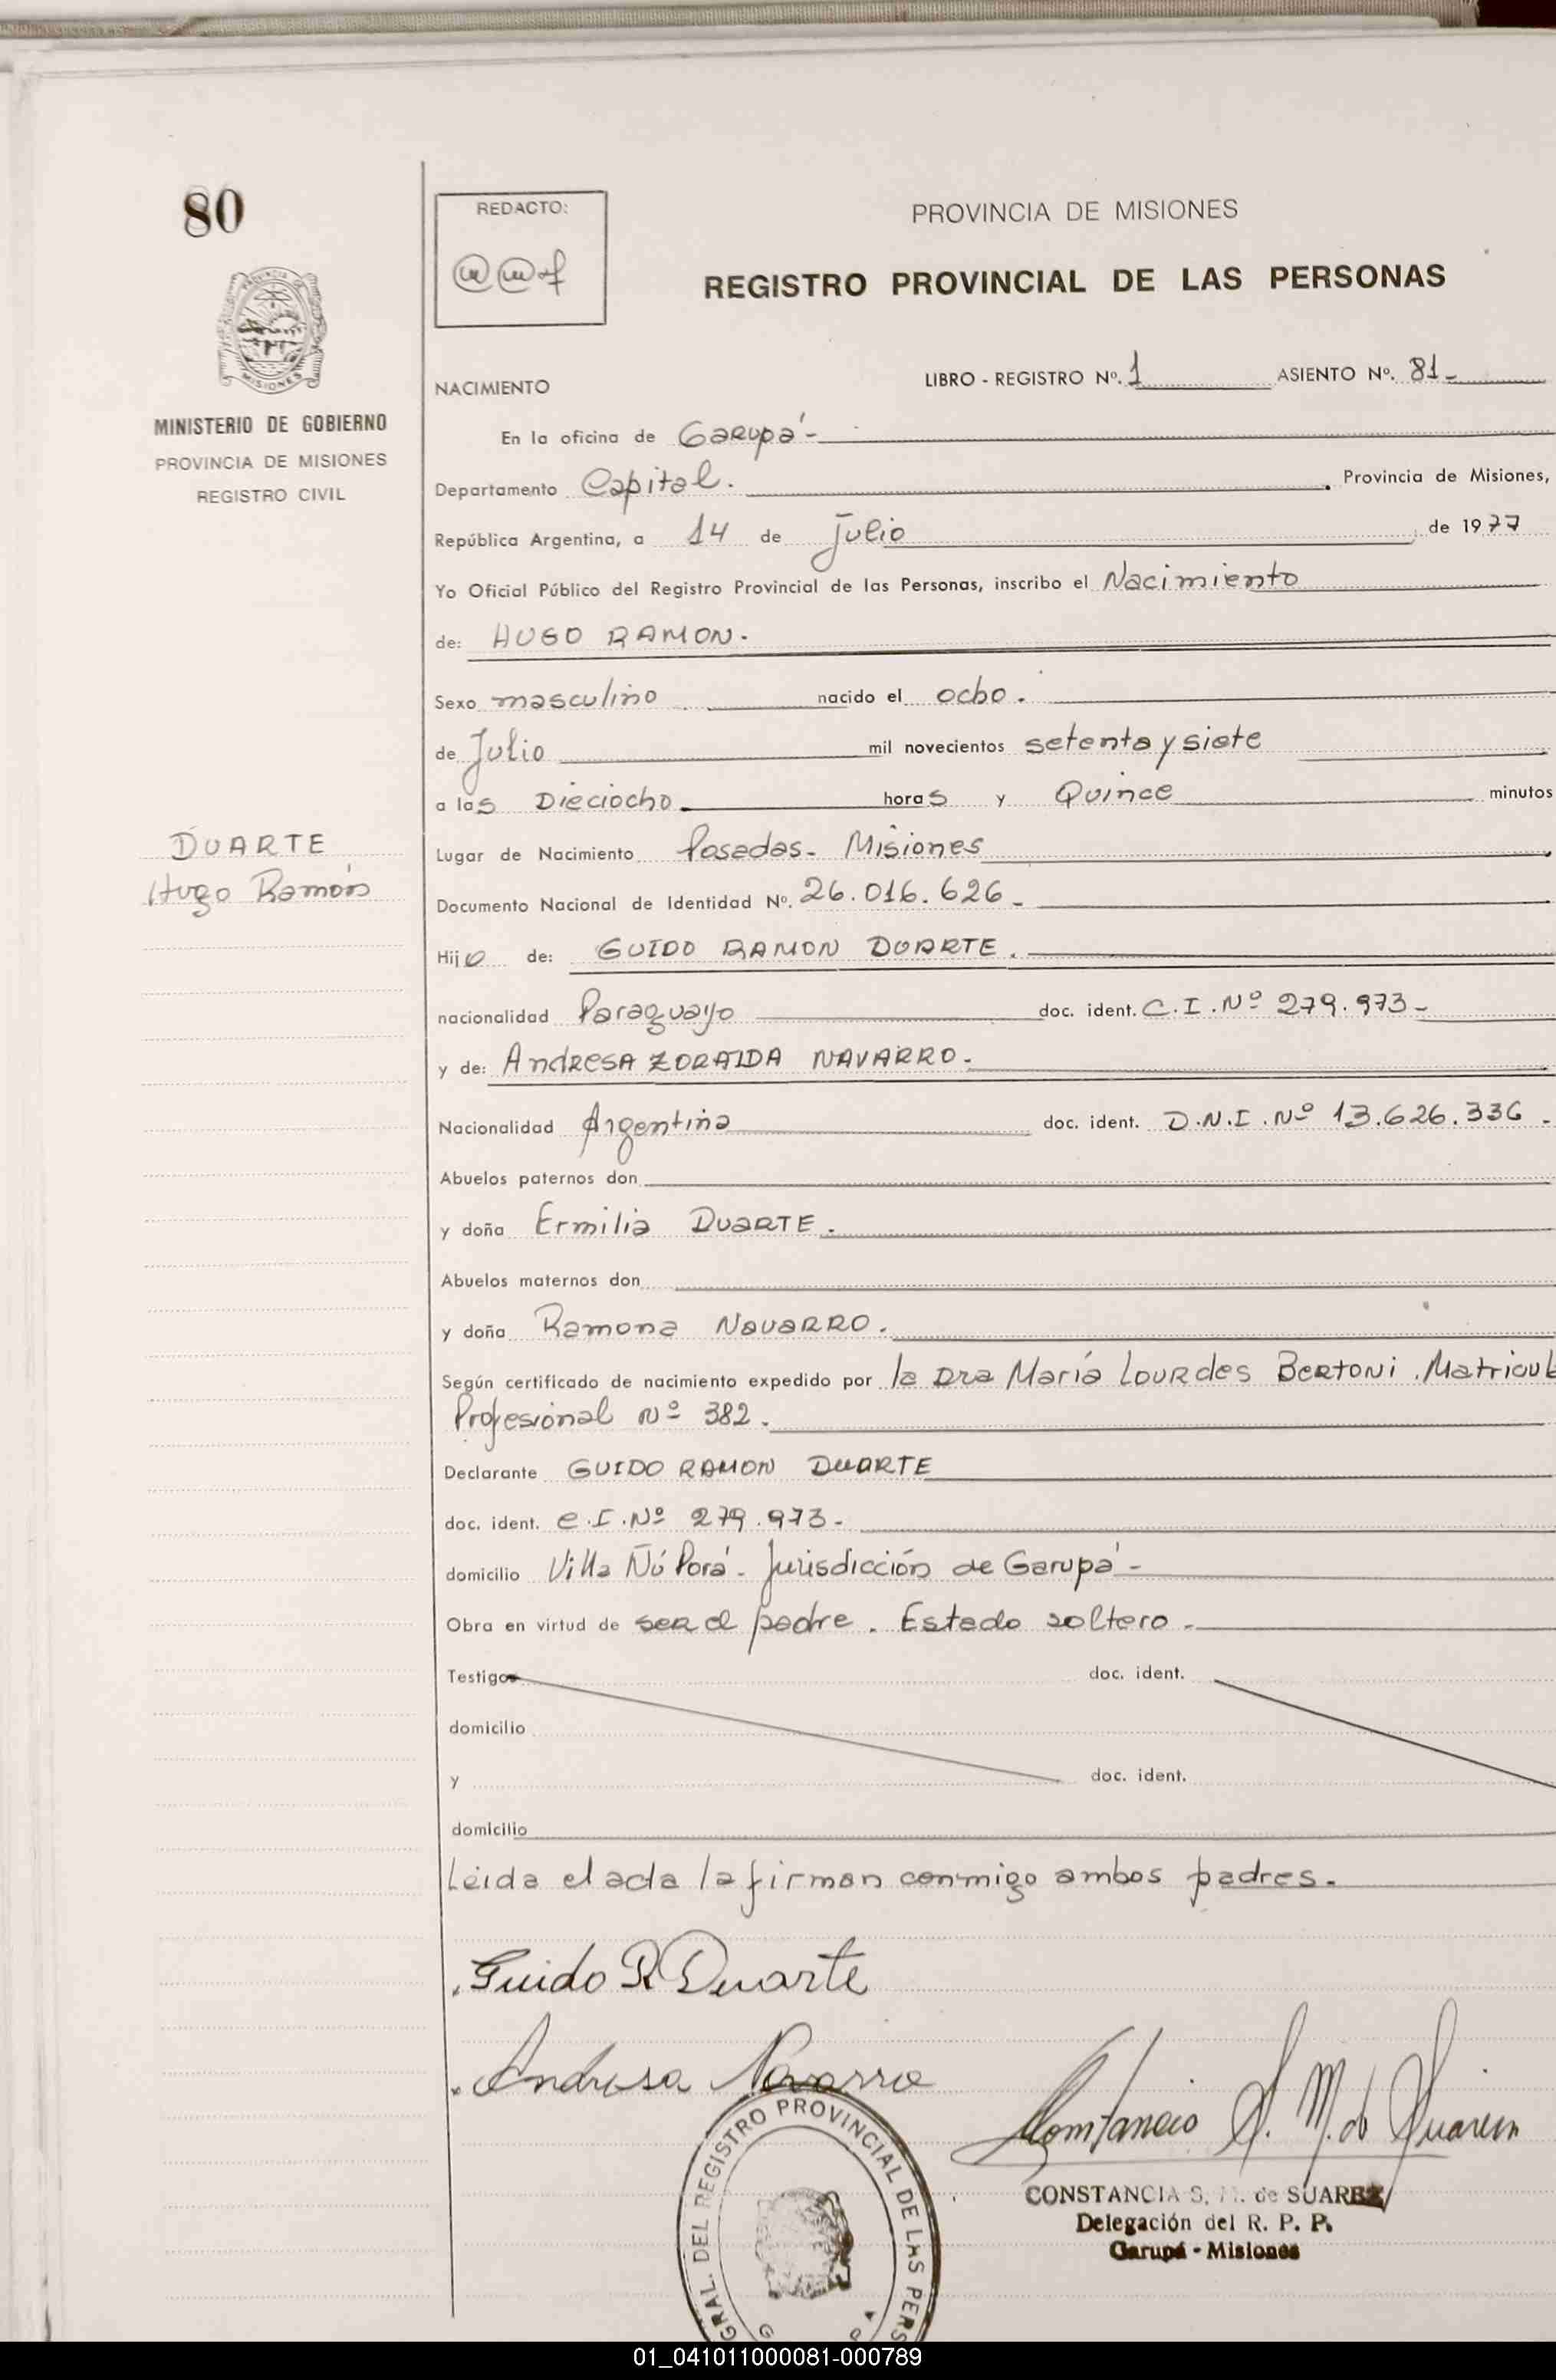 80
REDACTO:
PROVINCIA DE MISIONES
REGISTRO PROVINCIAL DE LAS PERSONAS
MISIONES
MINISTERIO DE GOBIERNO
PROVINCIA DE MISIONES
REGISTRO CIVIL
NACIMIENTO
LIBRO - REGISTRO Nº. 1 ASIENTO Nº. 81-
En la oficina de Garupá-
Departamento Capital. Provincia de Misiones,
República Argentina, a 14 de Julio de 1977
Yo Oficial Público del Registro Provincial de las Personas, inscribo el Nacimiento
de: HUGO RAMON.
Sexo masculino nacido el ocho.
de Julio mil novecientos setenta y siete
a las Dieciocho horas y Quince minutos
DUARTE
Hugo Ramón
Lugar de Nacimiento Posadas- Misiones
Documento Nacional de Identidad Nº. 26.016.626-
Hijo de: GUIDO RAMON DUARTE.
nacionalidad Paraguayo doc. ident. C.I.Nº 279.973-
y de: AndRESA ZORAIDA NAVARRO-
Nacionalidad Argentina doc. ident. D.N.I.Nº 13.626.336-
Abuelos paternos don
y doña Ermilia DUARTE.
Abuelos maternos don
y doña Ramona NAVARRO.
Según certificado de nacimiento expedido por la Dra María Lourdes BERTONI. Matricul
Profesional Nº 382.
Declarante GUIDO RAMON DUARTE
doc. ident. C.I.Nº 279.973-
domicilio Villa Ñú Porá- Jurisdicción de Garupá-
Obra en virtud de ser el padre. Estado soltero.
Testigos doc. ident.
domicilio
y doc. ident.
domicilio
Leida el acta la firman conmigo ambos padres.
Guido R Duarte
Andresa Navarro
Constancia S. M. de Suarez
CONSTANCIA S. M. de SUAREZ
Delegación del R. P. P.
Garupá - Misiones
GRAL. DEL REGISTRO PROVINCIAL DE LAS PERS
01_041011000081-000789